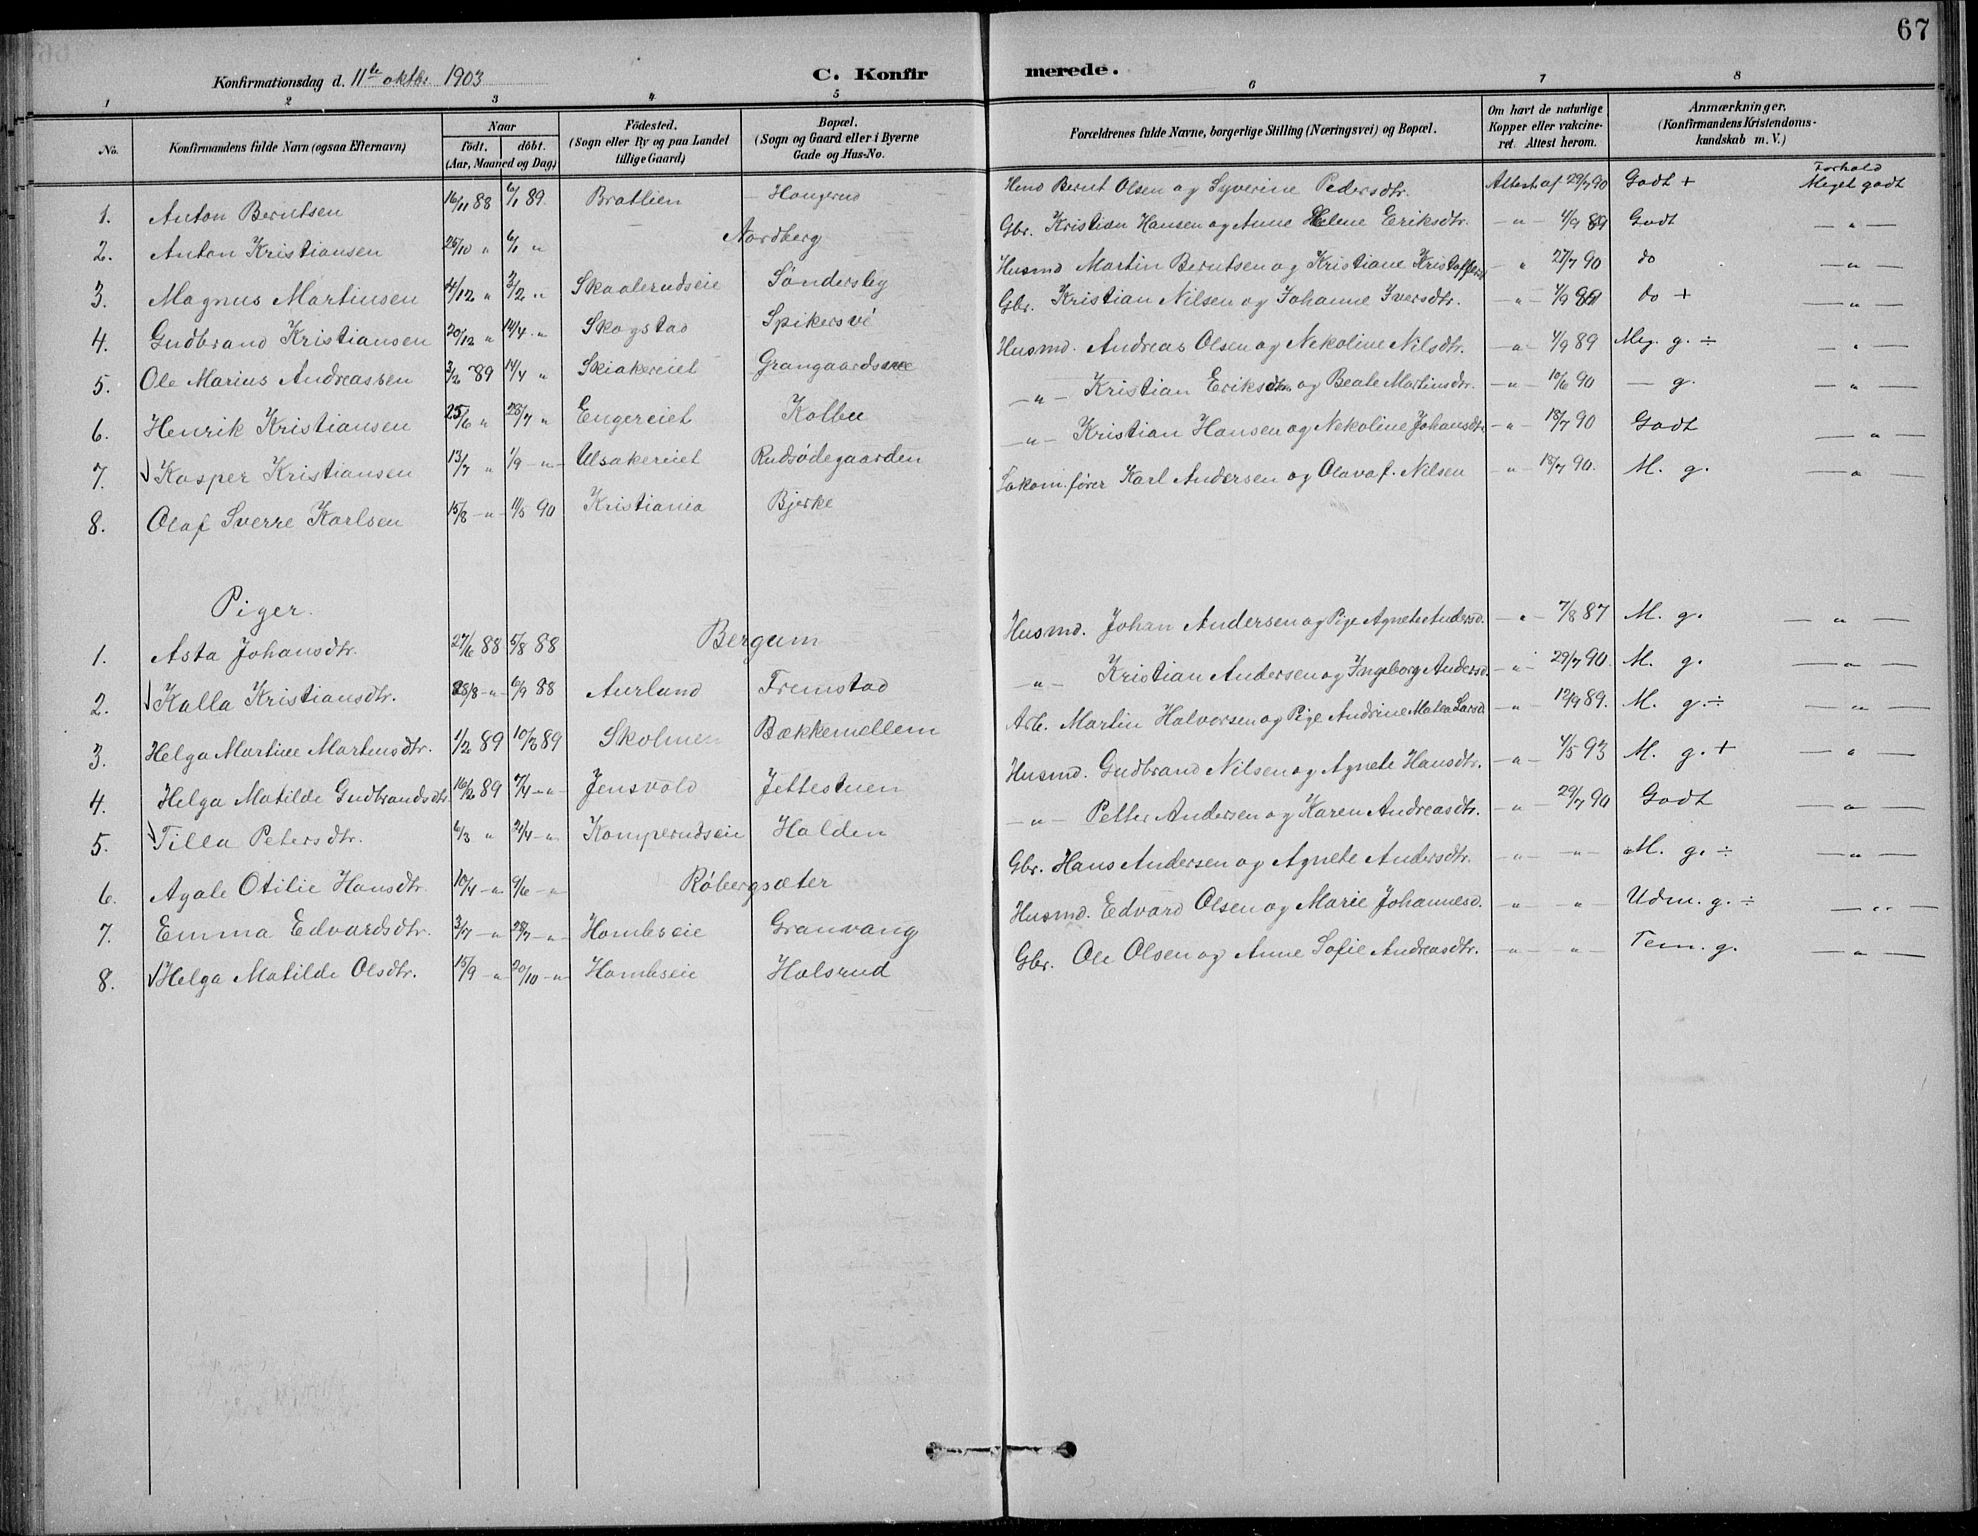 67
Konfirmationsdag d. 11te oktbr. 1903
C. Konfirmerede.
1 2 3 4 5 6 7 8
No. Konfirmandens fulde Navn (ogsaa Efternavn) Naar født, døbt. (Aar, Maaned og Dag) Fødested. (Sogn eller By og paa Landet tillige Gaard) Bopæl. (Sogn og Gaard eller i Byerne Gade og Hus-No. Forældrenes fulde Navne, borgerlige Stilling (Næringsvei) og Bopæl. Om havt de naturlige Kopper eller vakcineret. Attest herom. Anmærkninger. (Konfirmandens Kristendomskundskab m. V.)
Forhold
1. Anton Berntsen 16/11 88 6/1 89. Bratlien Haugerud Bernt Olsen og Syverine Pedersdtr. Attest af 29/7 90 Godt + Meget godt
2. Anton Kristiansen 25/10 " 6/1 " Nordberg Gbr. Kristian Hansen og Anne Helene Eriksdtr. — " — 4/9 89 Godt — " —
3. Magnus Martinsen 4/12 " 3/2 " Skaalerudseie Søndersby Husmd Martin Berntsen og Kristiane " 27/7 90 do — " —
4. Gudbrand Kristiansen 20/12 " 14/4 " Skogstad Spikersvé Gbr. Kristian Nilsen og Johanne Iversdtr. — " — 4/9 89 do + — " —
5. Ole Marius Andreassen 3/2 89 14/4 " Skiakereiet Husmd. Andreas Olsen og Nekoline Nilsdtr. — " — 4/9 89 Meg. g. ÷ — " —
6. Henrik Kristiansen 25/6 " 28/7 " Engereiet Kolbu — " — Kristian og Beate Martinsdtr. — " — 10/6 90 — g. — " —
7. Kasper Kristiansen 13/7 " 1/9 — " — Ulsakereiet Rudsødegaarden — " — Kristian Hansen og Nekoline Johansdtr. — " — 18/7 90 Godt — " —
8. Olaf Sverre Karlsen 15/8 — " — 11/5 90 Kristiania Bjerke Lokom.fører Karl Andersen og Olava f. Nilsen — " — 18/7 90. M. g. — " —
Piger.
1. Asta Johansdtr. 27/6 88 5/8 88 Bergum Husmd. Johan Andersen og Pige Agnete Andersd. — " — 7/8 87 M. g. — " —
2. Kalla Kristiansdtr. 28/8 — " — 6/9 88 Aurlund Fremstad — " — Kristian Andersen og Ingeborg Andersd. — " — 29/7 90. M. g. — " —
3. Helga Martine Martinsdtr. 1/2 89 10/3 89 Bækkemellem Arb. Martin Halvorsen og Pige Andrine Matea Larsd. — " — 12/9 89. M. g. ÷ — " —
4. Helga Matilde Gudbrandsdtr 16/2 89 7/4 — " — Jensvold Jettestuen Husmd. Gudbrand Nilsen og Agnete Hansdtr. — " — 4/5 93 M. g. + — " —
5. Tilla Petersdtr. 6/3 " 21/4 — " — Komperudseie Halden — " — Petter Andersen og Karen Andreasdtr. — " — 29/7 90 Godt — " —
6. Agate Otilie Hansdtr. 10/4 — " — 9/6 — " — Røbergsæter Gbr. Hans Andersen og Agnete Andersdtr. — " — — " — M. g. ÷ — " —
7. Emma Edvardsdtr. 3/7 — " — 28/7 — " — Granvang Husmd. Edvard Olsen og Marie Johannesd. — " — — " — Udm. g. ÷ — " —
8. Helga Matilde Olsdtr. 15/9 — " — 20/10 — " — Halsrud Gbr. Ole Olsen og Anne Sofie Andreasdtr. — " — — " — Tem. g. — " —